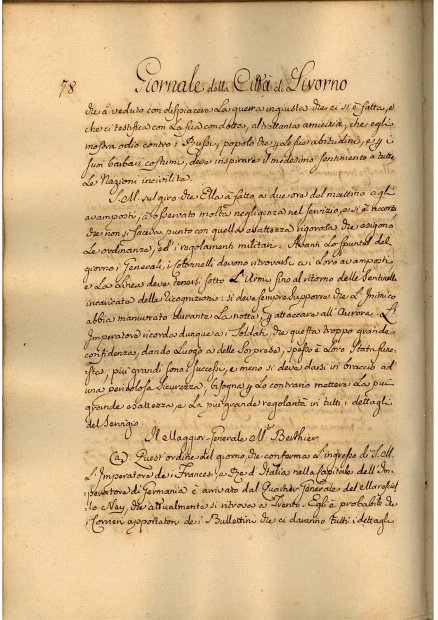 78 Giornale della Città di Livorno
che à veduto con dispiacere La guerra ingiusta che ci si è fatta, e
che ci testifica con La sua condotta, altrettanta amicizia, che egli
mostra odio contro i Russi, popolo che p Le sue abitudini, e p i
suoi barbari costumi, deve inspirare il medesimo sentimento a tutte
Le Nazioni incivilite.
S. M. sul giro che Ella à fatto a due ora del mattino agli
avamposti, à osservato molta negligenza nel servizio, e si è accorta
che non si faceva punto con quella esattezza rigorosa che esigono
Le ordinanze, ed i regolamenti militari. Avanti Lo spuntar del
giorno i Generali, i Colonnelli devono ritrovarsi a i Loro avamposti
e La Linea deve tenersi sotto L'Armi fino al ritorno delle Sentinelle
incaricate delle Ricognizioni: si deve sempre supporre che L'Inimico
abbia manovrato durante La notte, p attaccare all'Aurora. L'
Imperatore ricorda dunque a' Soldati che questa troppo grande
confidenza, dando Luogo a delle Sorprese, spesso è Loro Stata fune-
sta, più grandi sono i successi, e meno si deve darsi in braccio ad
una pericolosa Sicurezza, bisogna p Lo contrario mettere La più
grande esattezza, e La più grande regolarità in tutti i dettagli
del Servizio.
Il Maggior-Generale M.r Berthier
(a) Quest'ordine del giorno, che conferma L'ingresso di S. M.
L'Imperatore de' Francesi, e Re d'Italia nella Capitale dell'Im-
peratore di Germania è arrivato dal Quartier-Generale del Marescial-
lo Ney, che attualmente si ritrova a Trento. Egli è probabile che
i Corrieri apportatori de' Bullettini che ci daranno tutti i dettagli